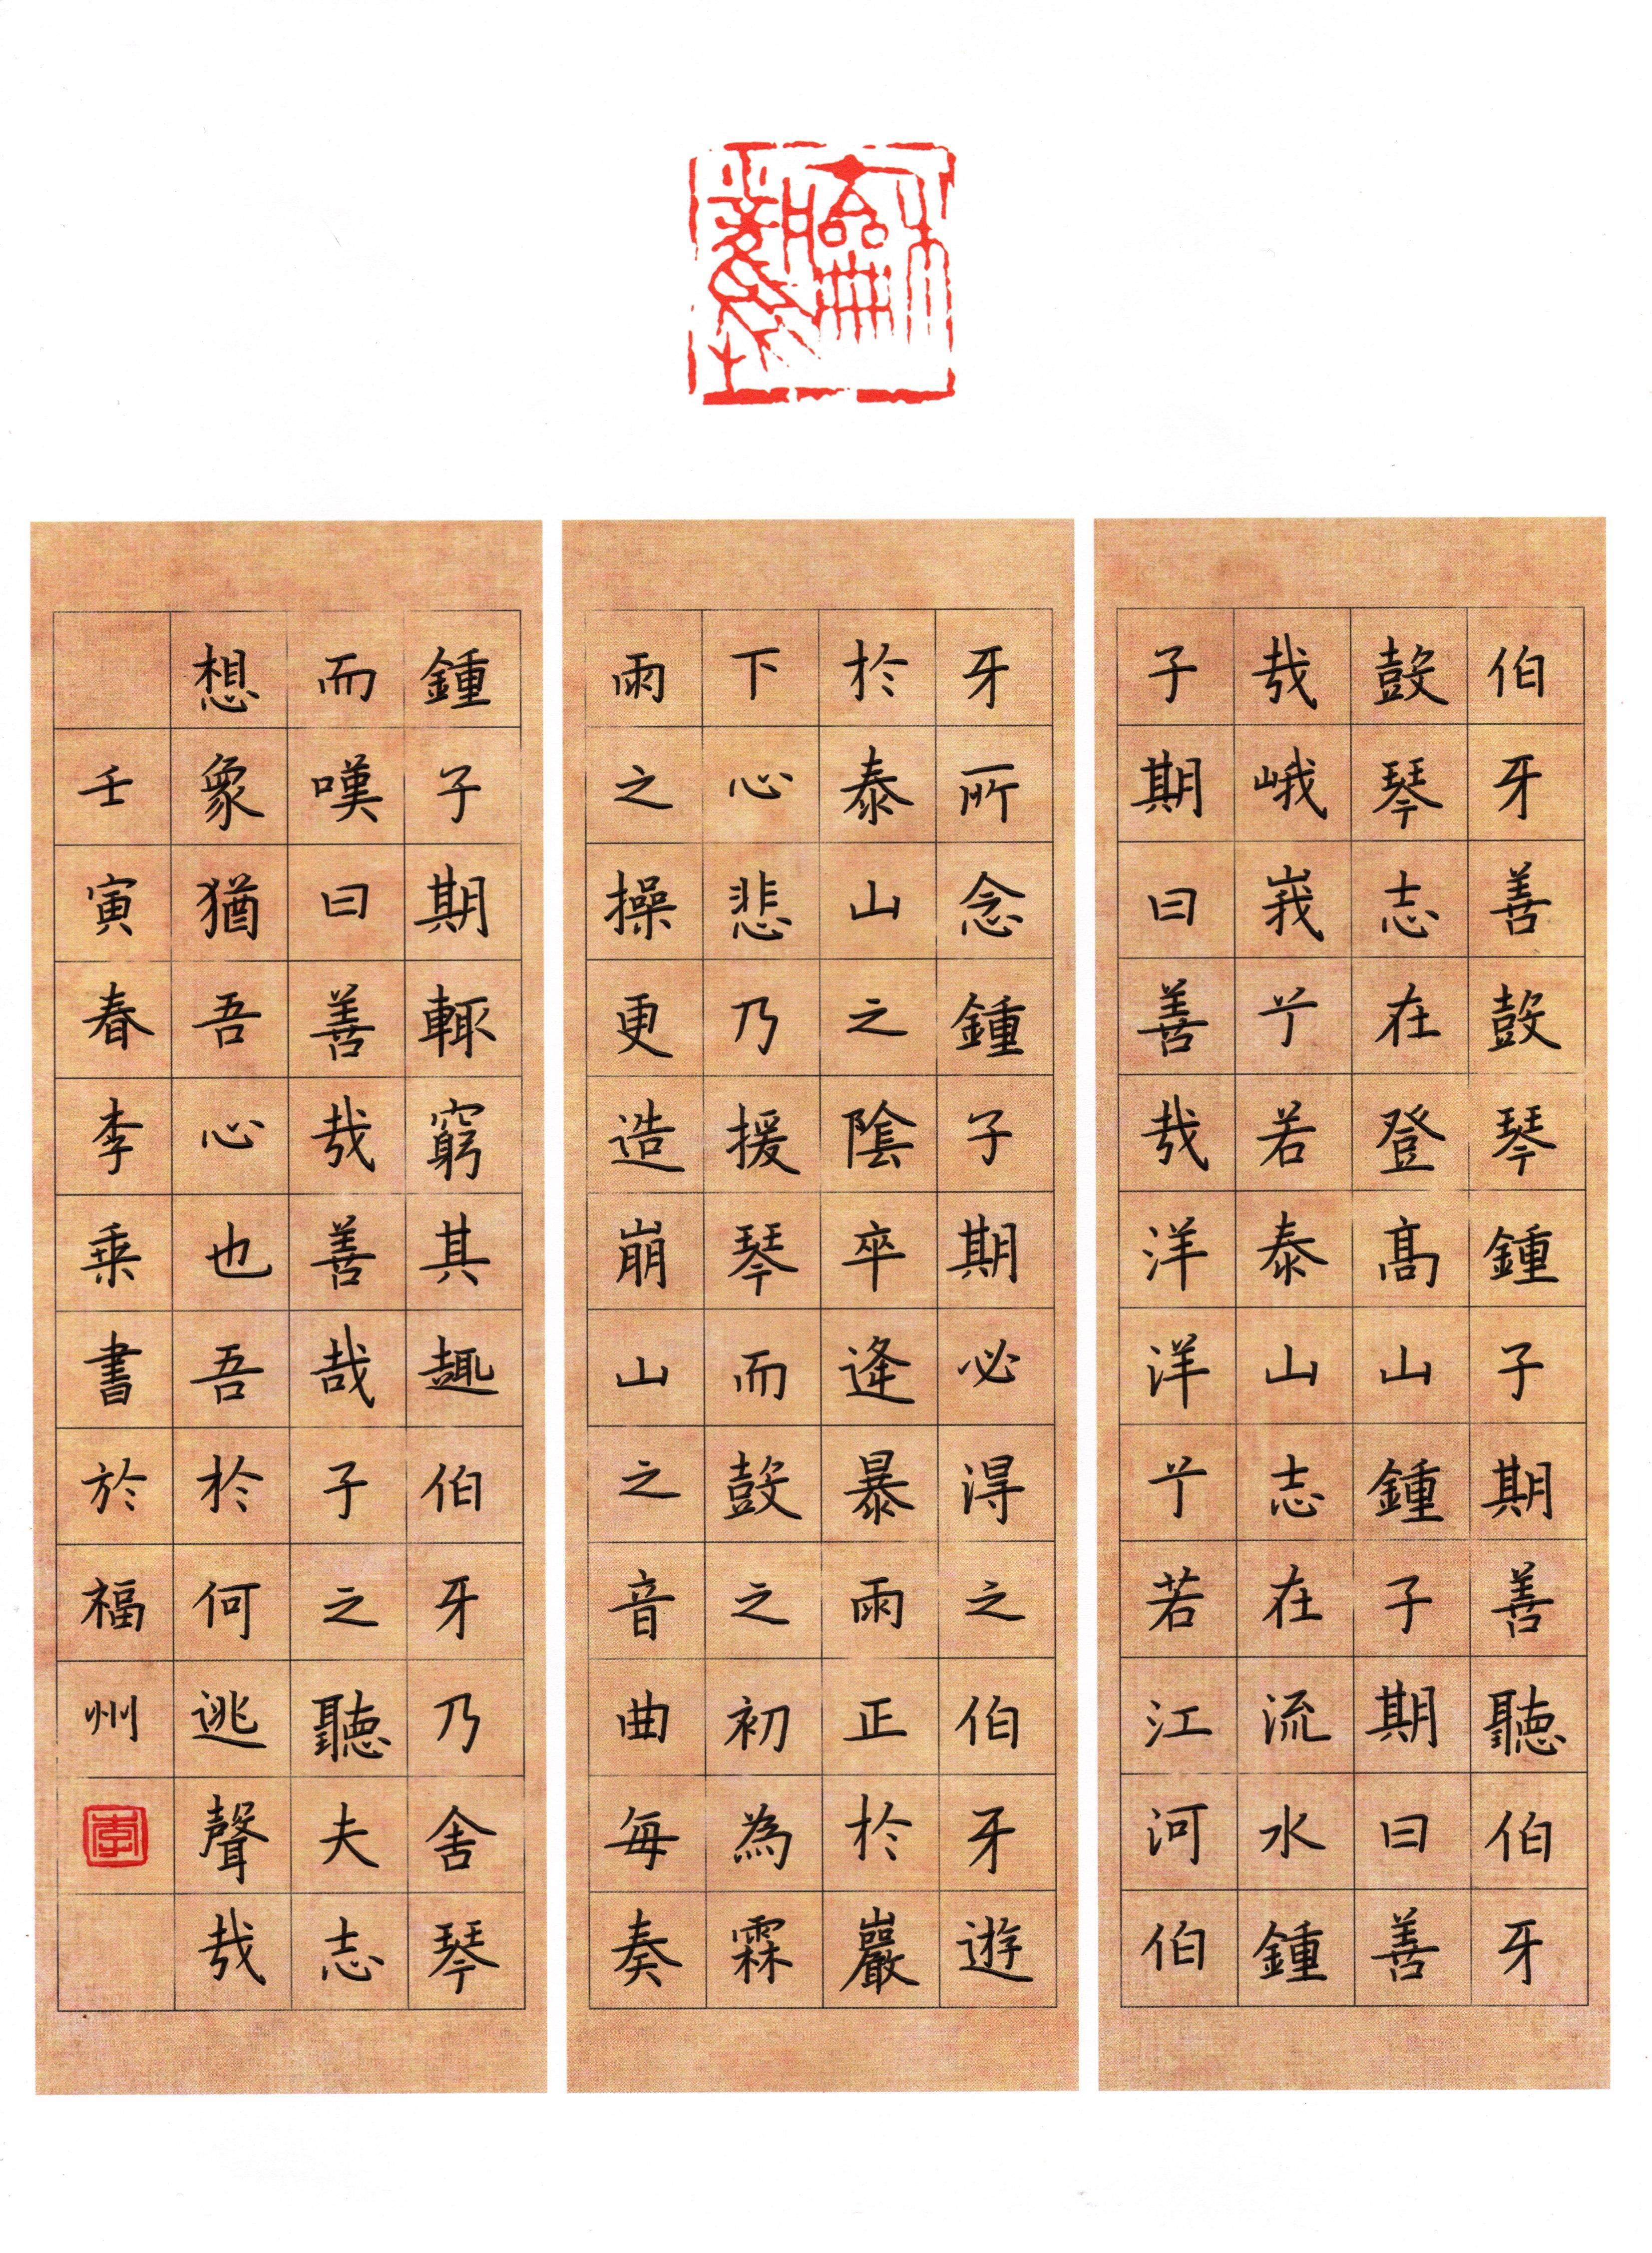 伯牙善鼔琴鍾子期善聽伯牙
鼔琴志在登髙山鍾子期曰善
哉峨峩兮若泰山志在流水鍾
子期曰善哉洋洋兮若江河伯
牙所念鍾子期必得之伯牙遊
於泰山之陰卒逢暴雨正於巖
下心悲乃援琴而鼔之初為霖
雨之操更造崩山之音曲每奏
鍾子期輒窮其趣伯牙乃舍琴
而嘆曰善哉善哉子之聽夫志
想象猶吾心也吾於何逃聲哉
壬寅春李乘書於福州
李